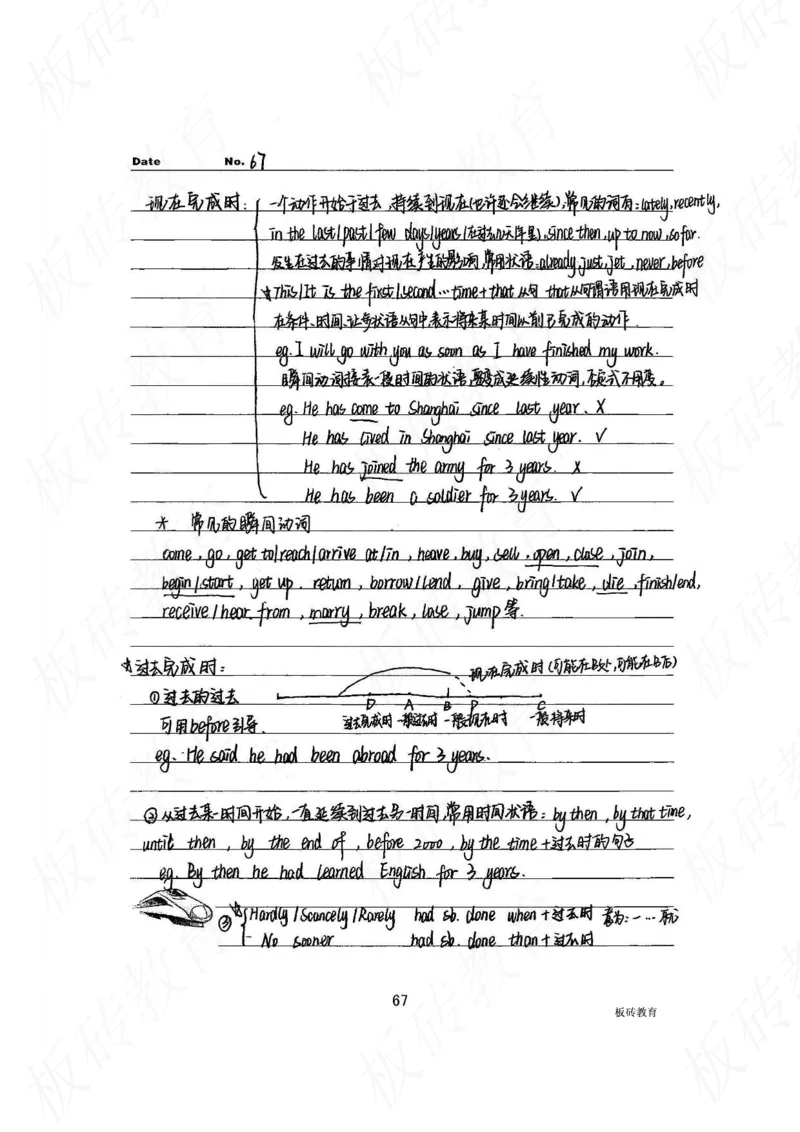 Date No. 67
现在完成时: 一个动作开始于过去,持续到现在(也许还会继续),常见的词有: lately, recently,
in the last/past/few days/years (在过去几天/年里), since then, up to now, so far.
发生在过去的事情对现在产生的影响,常用状语: already, just, yet, never, before
☆This/It is the first/second…time+that从句 that从句谓语用现在完成时
在条件、时间、让步状语从句中,表示将来某时间以前已完成的动作.
eg. I will go with you as soon as I have finished my work.
瞬间动词接表一段时间的状语,要变成延续性动词,
eg. He has come to Shanghai since last year. ×
He has lived in Shanghai since last year. √
He has joined the army for 3 years. ×
He has been a soldier for 3 years. √
* 常见的瞬间动词
come, go, get to/reach/arrive at/in, heave, buy, sell, open, close, join,
begin/start, get up, return, borrow/lend, give, bring/take, die, finish/end,
receive/hear from, marry, break, lose, jump等.
☆过去完成时:
现在完成时(可能在B处,可能在B后)
①过去的过去
D A B P C
可用before引导.
过去完成时 一般过去时 一般现在时 一般将来时
eg. He said he had been abroad for 3 years.
②从过去某一时间开始,一直延续到过去另一时间,常用时间状语: by then, by that time,
until then, by the end of, before 2000, by the time+过去时的句子
eg. By then he had learned English for 3 years.
☆③ Hardly/Scarcely/Rarely had sb. done when+过去时 意为:一…就
No sooner had sb. done than+过去时
67
板砖教育